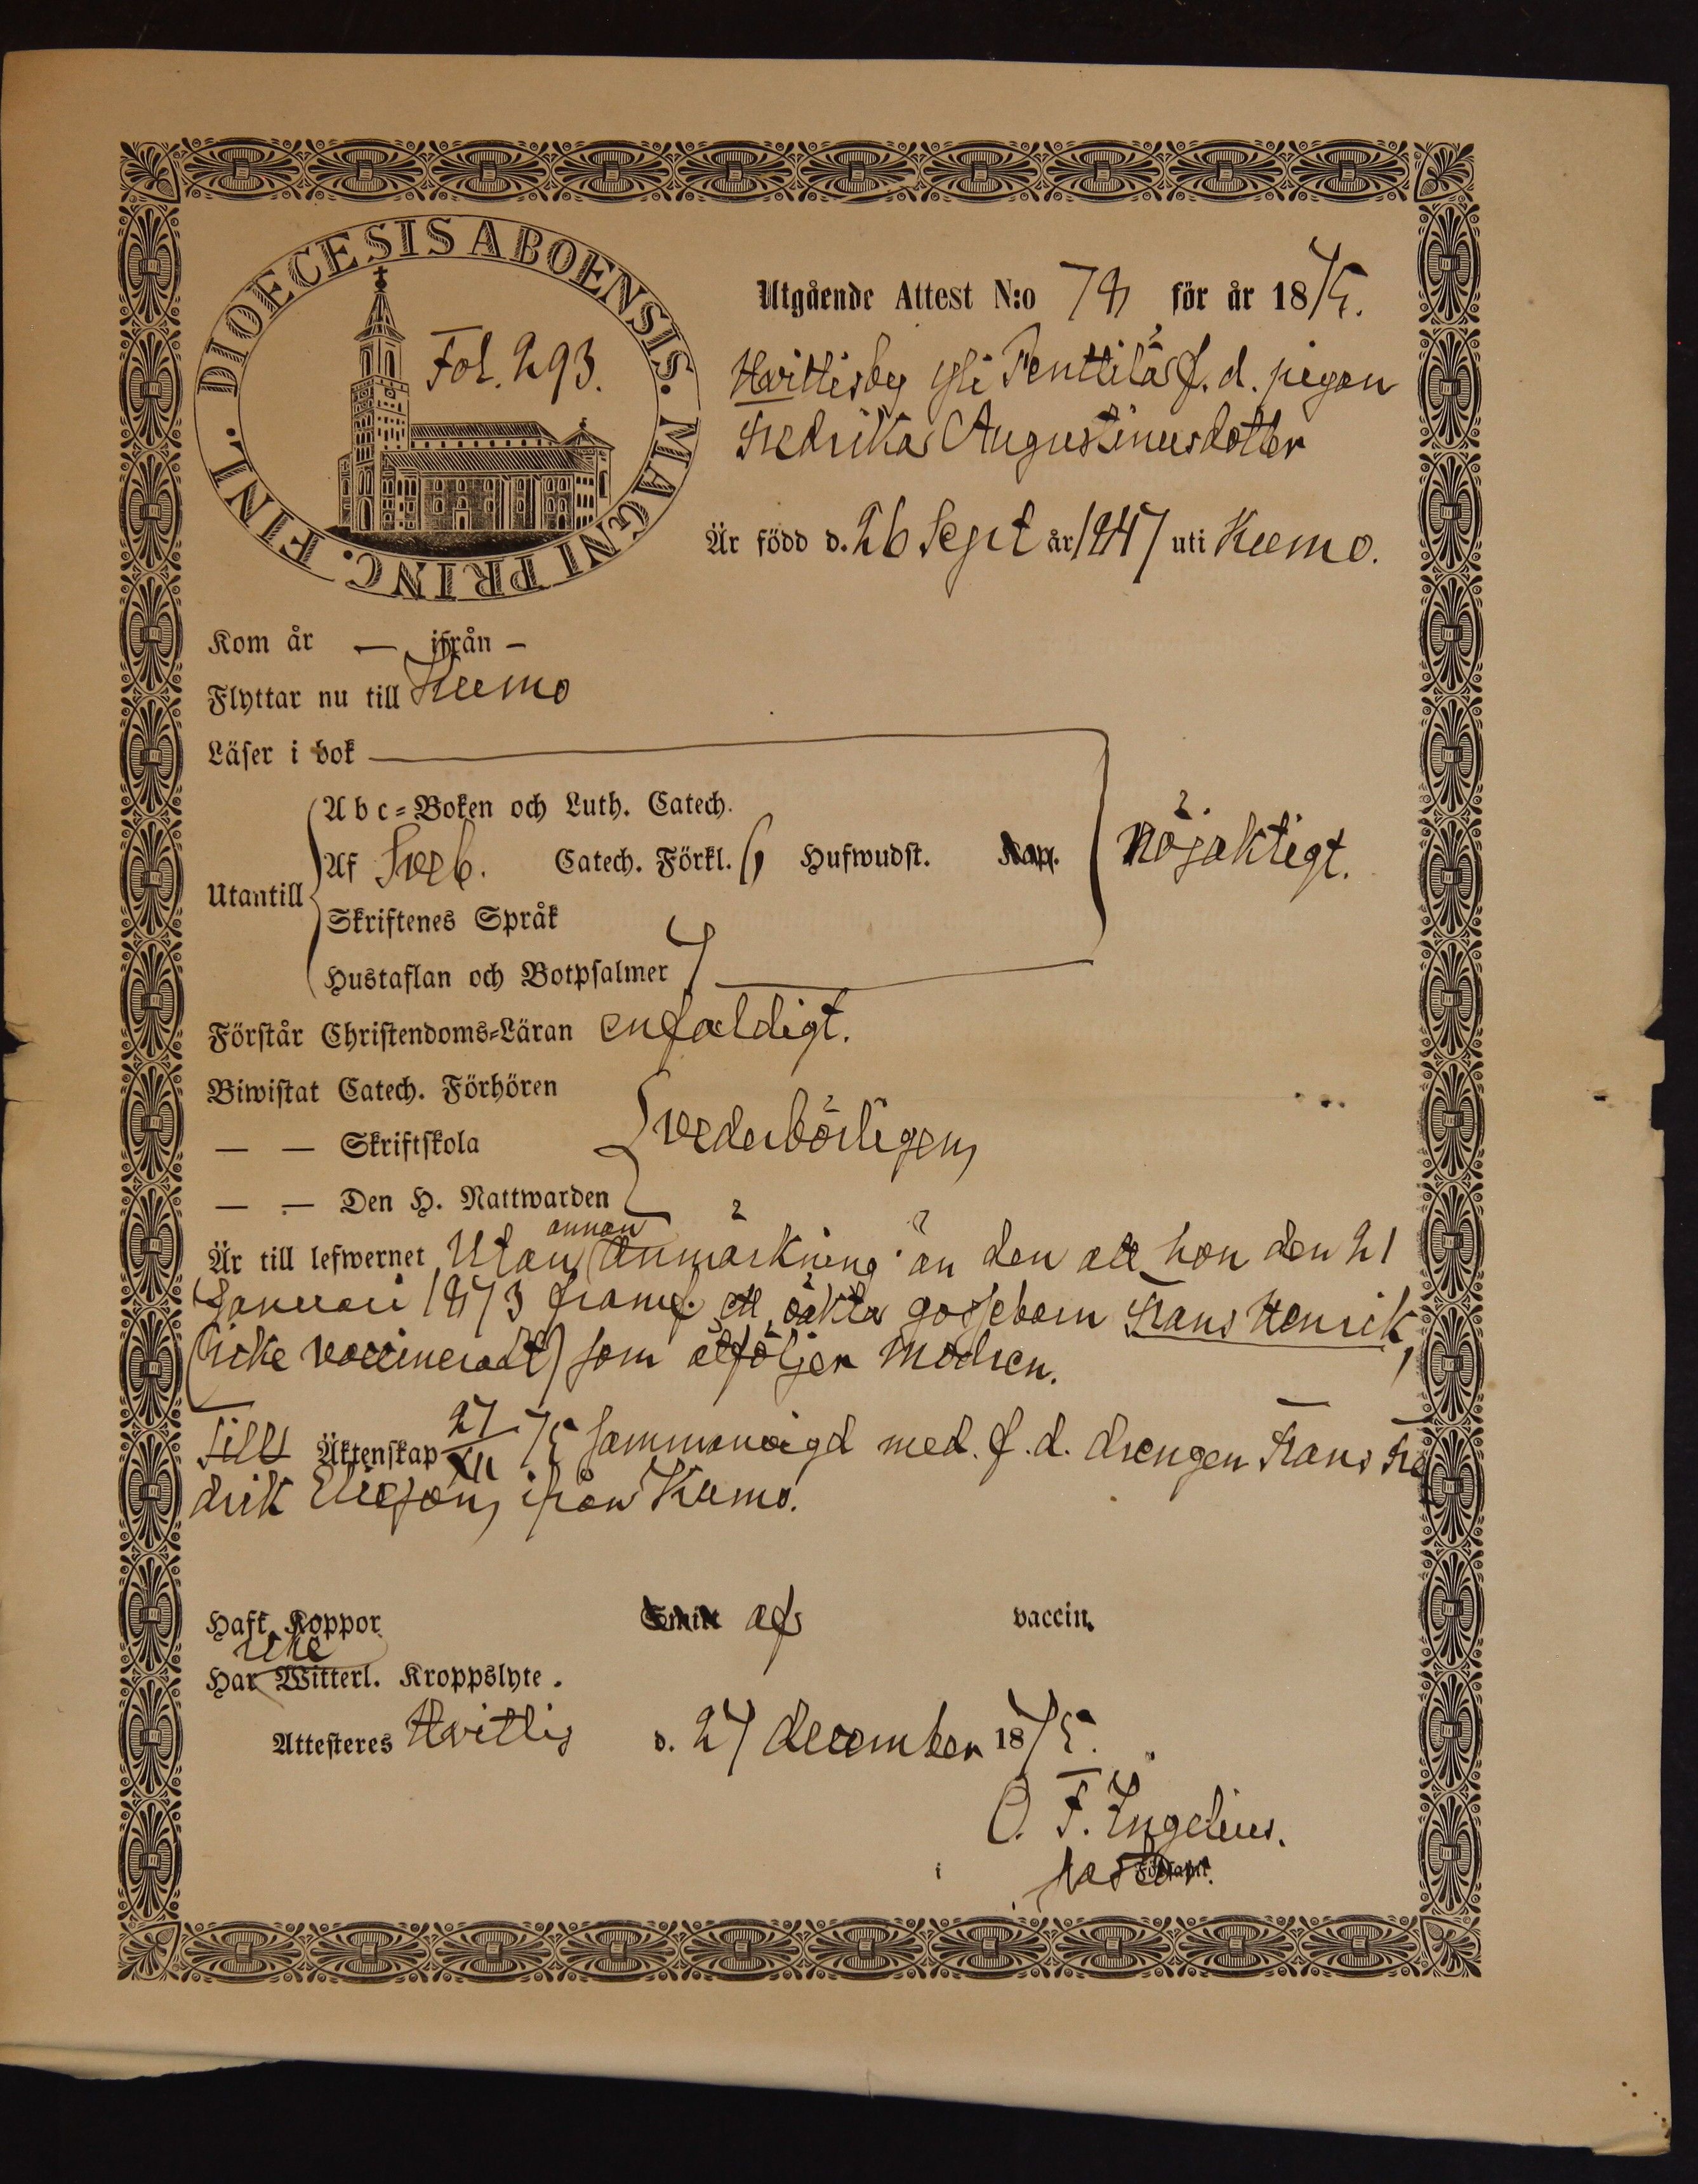 DIOECESIS ABOENSIS. MAGNI PRINC. FINL.
Fol. 293.
Utgående Attest N:o 78 för år 1875.
Hvittisby Penttilä f. d. pigan
Fredrika Augustinusdotter
Är född d. 26 Sept år 1847 uti Kumo.
Kom år — ifrån —
Flyttar nu till Kumo
Läser i bok
Abc-Boken och Luth. Catech.
Utantill
Af Sveb. Catech. Förkl. 6 Hufwudst. Kap.
nöjaktigt.
Skriftenes Språk
Hustaflan och Botpsalmer 7
Förstår Christendoms-Läran enfaldigt.
Biwistat Catech. Förhören
— — Skriftskola
vederbörligen
— — Den H. Nattwarden
Är till lefwernet Utan annan anmärkning än den att hon den 21
Januari 1873 framf. ett oäkta gossebarn Frans Henrik,
(icke vaccineradt) som åtföljer modren.
Till Äktenskap 27/XII 75 sammanvigd med f. d. drengen Frans Fre
drik Eliasson ifrån Kumo.
Haft Koppor af vaccin.
Har icke Witterl. Kroppslyte.
Attesteres Hvittis d. 27 december 1875.
O. F. Ingelius.
i pastor.